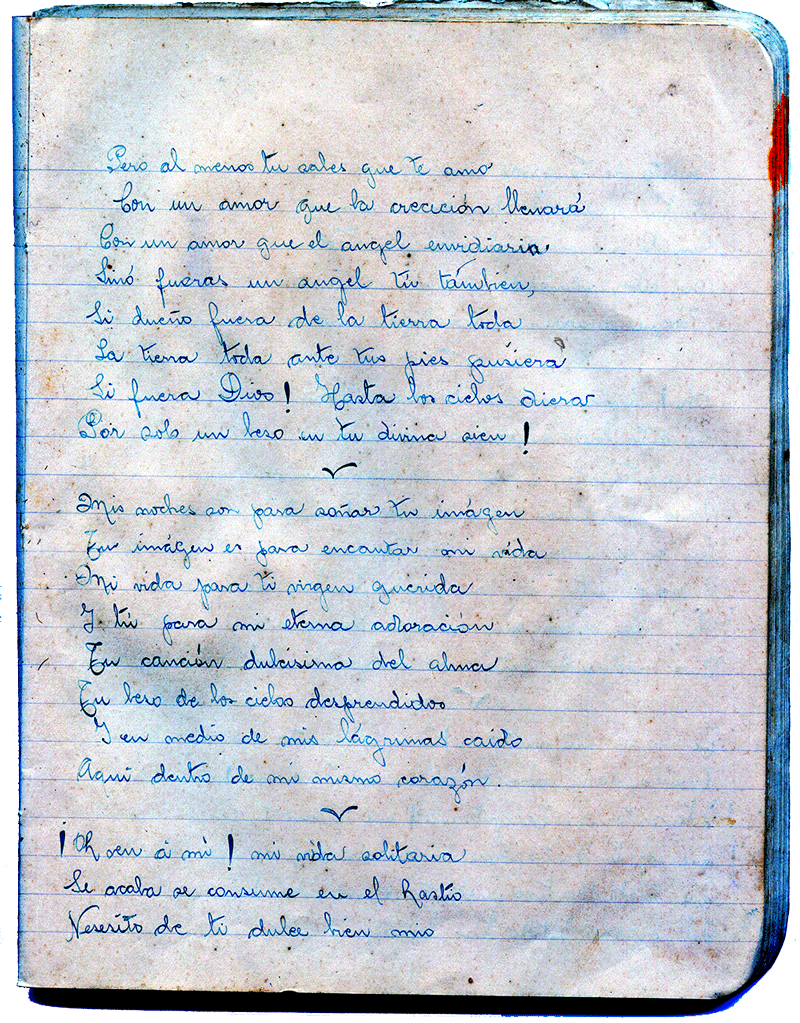 Pero al menos tu sabes que te amo
Con un amor que la crección llenará
Con un amor que el angel envidiaria
Sinó fueras un angel tú támbien,
Si dueño fuera de la tierra toda
La tierra toda ante tus pies pusiera
Si fuera Dios! Hasta los cielos diera
Por solo un beso en tu divina sien!
Mis noches son para soñar tu imágen
Tu imágen es para encantar mi vida
Mi vida para ti virgen querida
Y tú para mi eterna adoración
Tu canción dulcísima del alma
Tu beso de los cielos desprendidos
Y en medio de mis lágrimas caido
Aquí dentro de mi mismo corazón.
¡Oh ven á mi! mi vida solitaria
Se acaba se consume en el hastio
Nesesito de ti dulce bien mio